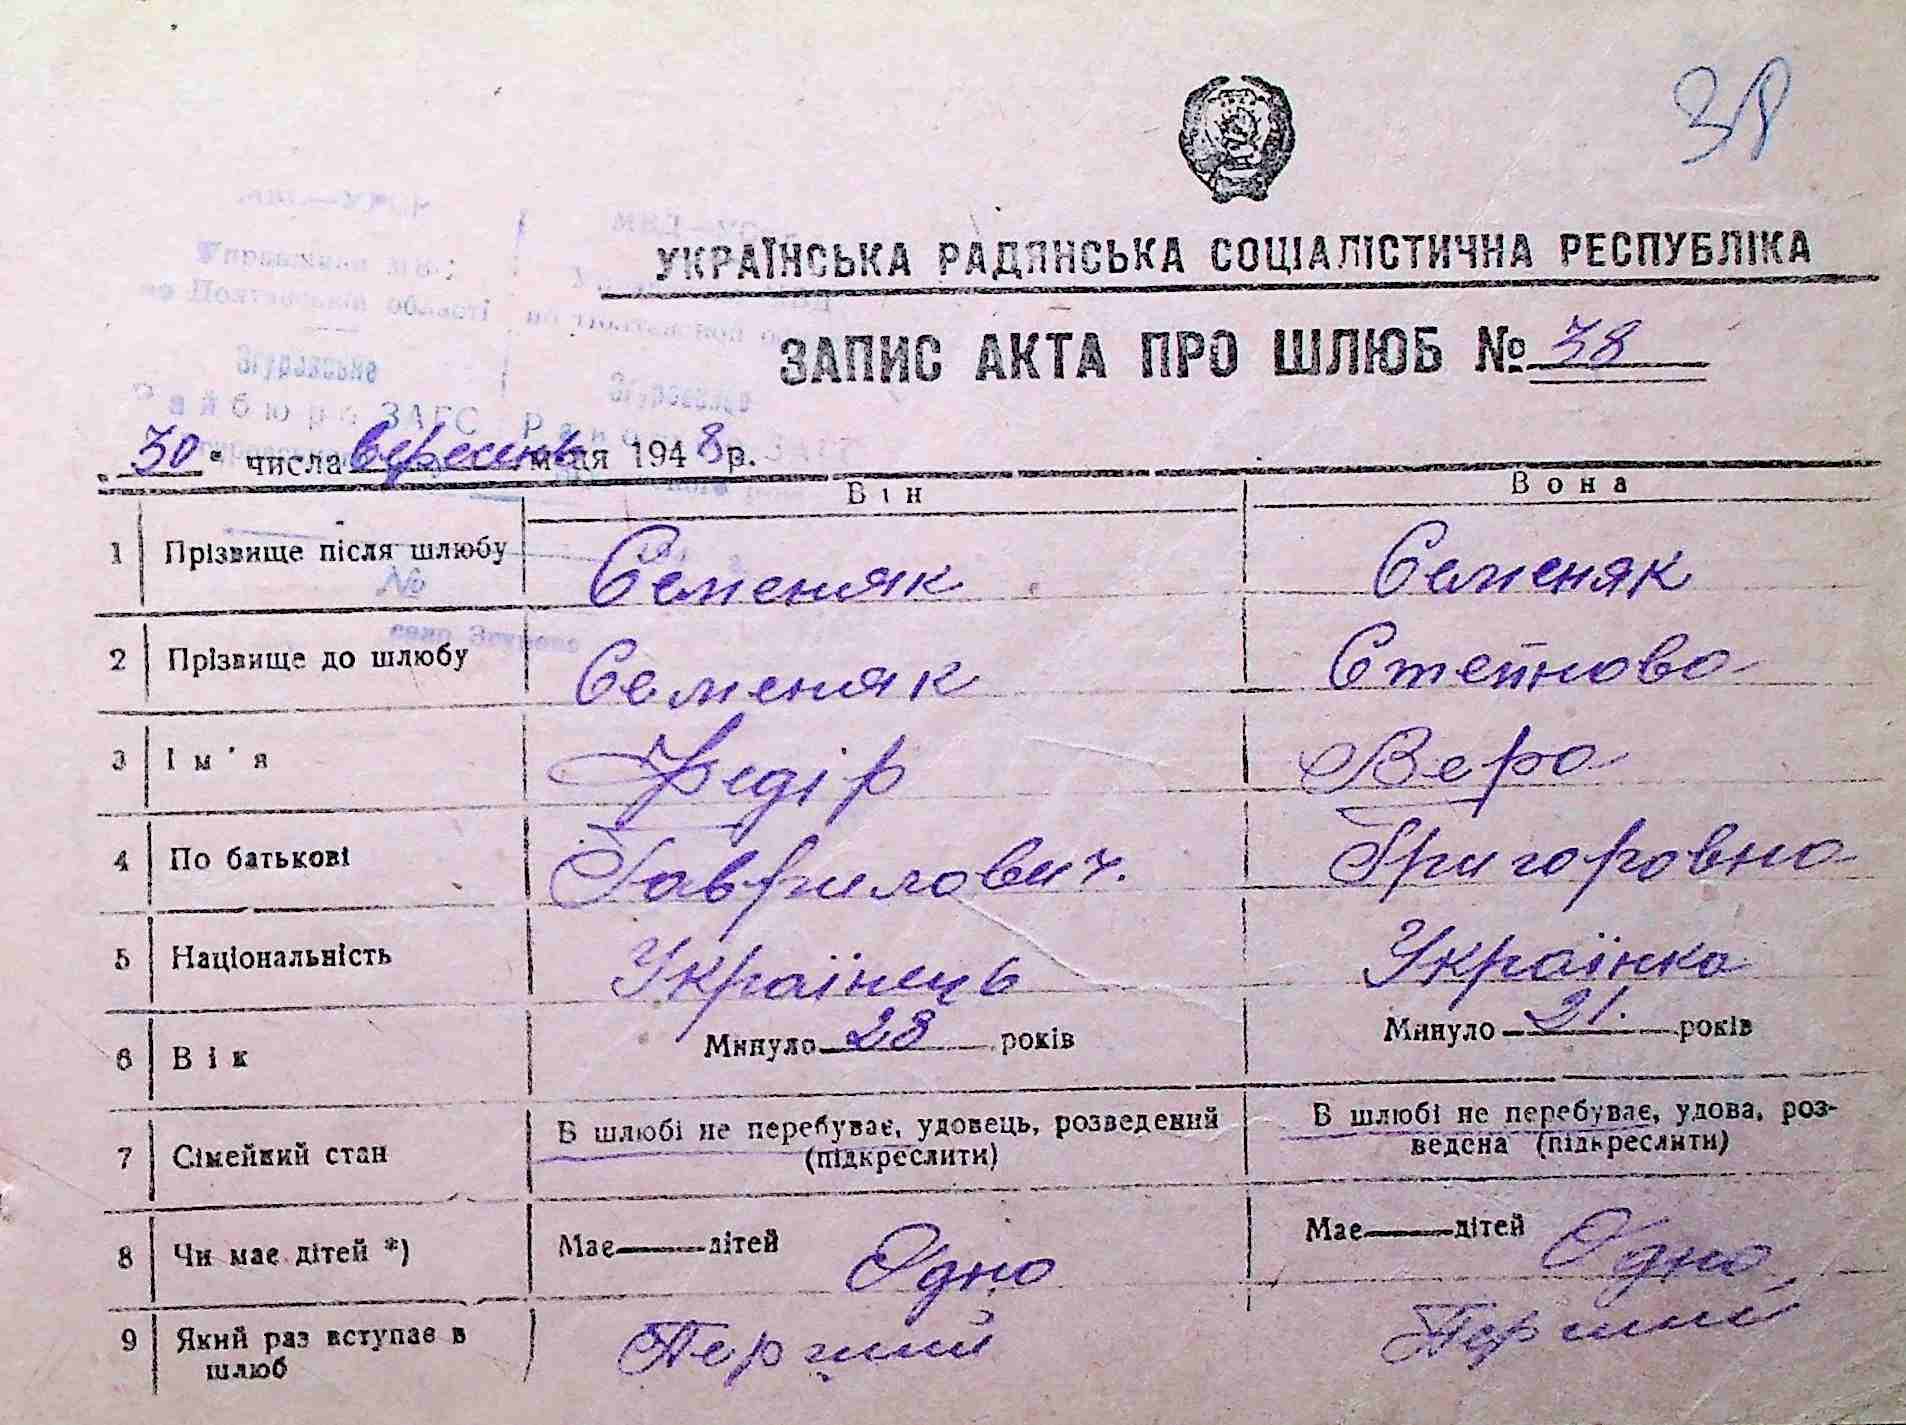 38
УКРАЇНСЬКА РАДЯНСЬКА СОЦІАЛІСТИЧНА РЕСПУБЛІКА
ЗАПИС АКТА ПРО ШЛЮБ № 38
„30“ числа вересень м-ця 1948 р.
Він Вона
1 Прізвище після шлюбу Семеняк Семеняк
2 Прізвище до шлюбу Семеняк
3 Ім'я Федір Вера
4 По батькові Гаврилович. Григоровна
5 Національність Українець Українка
6 Вік Минуло 28 років Минуло 21. років
7 Сімейний стан В шлюбі не перебуває, удовець, розведений (підкреслити) В шлюбі не перебуває, удова, роз-
ведена (підкреслити)
8 Чи має дітей *) Має — дітей Одно Має — дітей Одно
9 Який раз вступає в Перший Перший
шлюб
Управління
по Полтавській області
Згурівське
Райбюро ЗАГС
№
село Згурівка